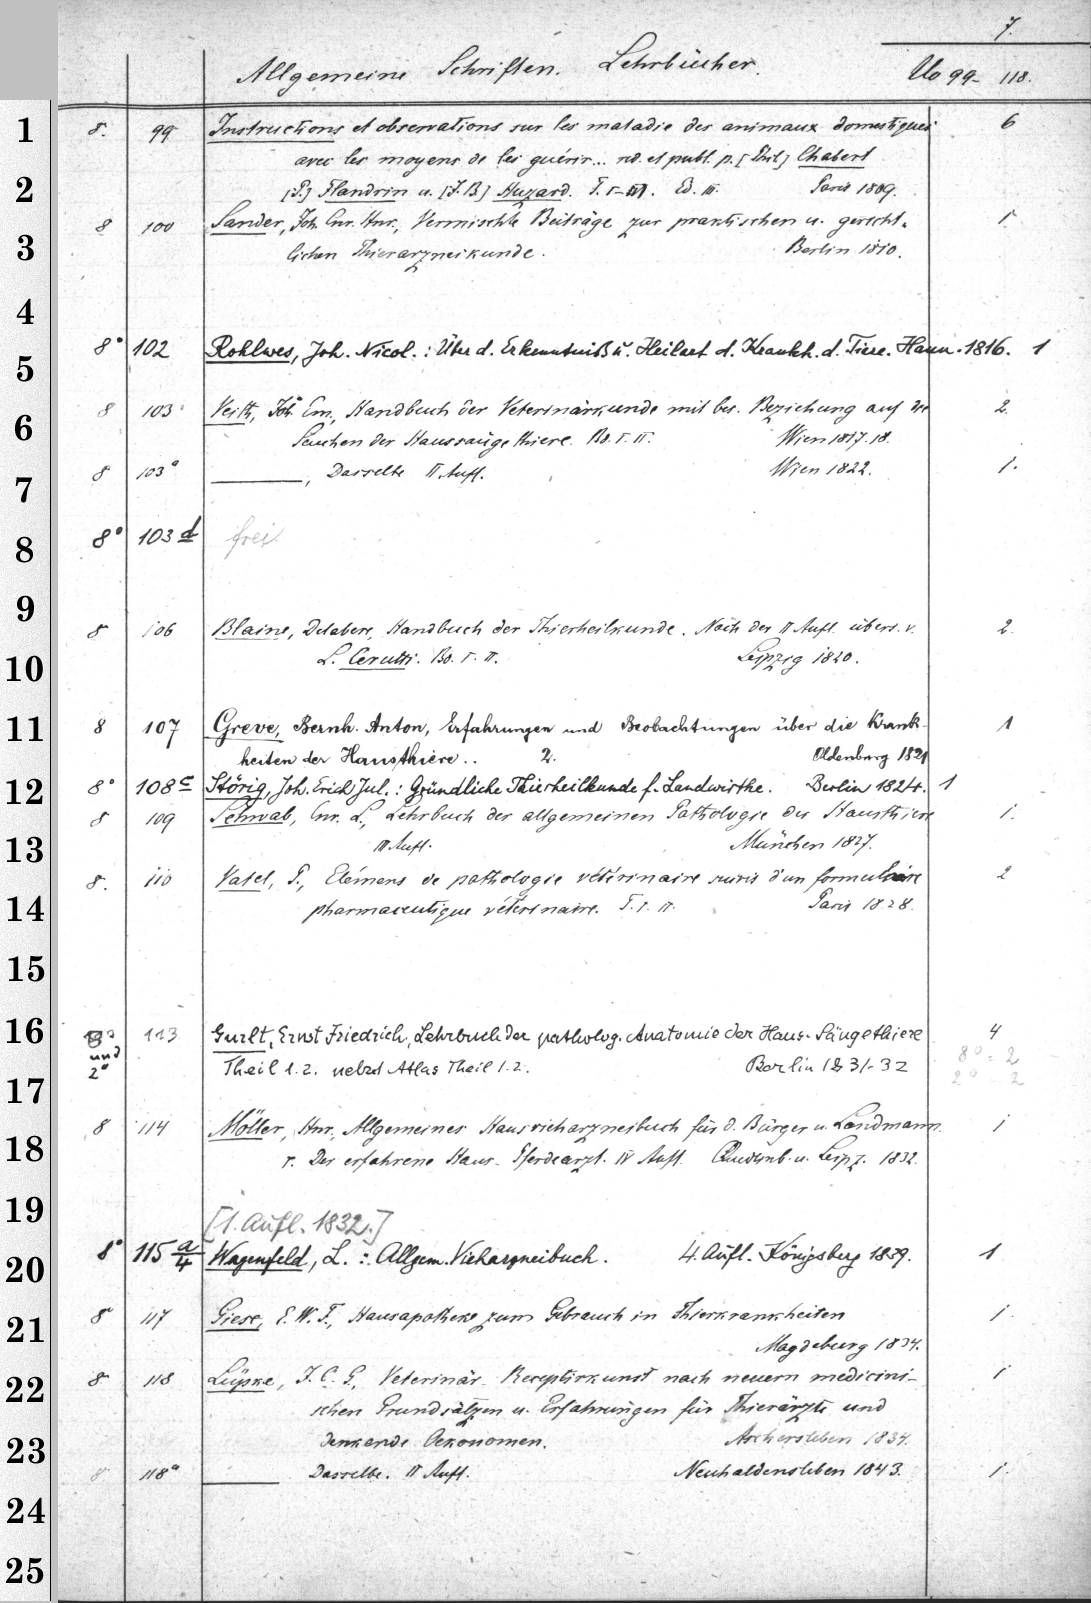 7.
Allgemeine Schriften. Lehrbücher. Uo 99 - 118.
1
8. 99 Instructions et observations sur les maladie des animaux domestiques 6
avec les moyens de les guérir... réd. et publ. p. [Phil] Chabert
2 [P.] Flandrin u. [J. B] Huzard. T. I-VI. Ed. III. Paris 1809.
8 100 Sander, Joh. Cnr. Hnr., Vermischte Beiträge zur praktischen u. gericht- 1
3 lichen Thierarzneikunde. Berlin 1810.
4
8° 102 Rohlwes, Joh. Nicol.: Über d. Erkenntniß u. Heilart d. Krankh. d. Tiere. Hann. 1816. 1
5
8 103 Veith, Joh. Em., Handbuch der Veterinärkunde mit bes. Beziehung auf die 2.
6 Seuchen der Haussäugethiere. Bd. I. II. Wien 1817. 18.
8 103a ———, Dasselbe II Aufl. Wien 1822. 1.
7
8 8° 103d frei
9
8 106 Blaine, Delabere, Handbuch der Thierheilkunde. Nach der II Aufl. übers. v. 2.
10 L. Cerutti. Bd. I. II. Leipzig 1820.
11 8 107 Greve, Bernh. Anton, Erfahrungen und Beobachtungen über die Krank- 1
heiten der Hausthiere.. 2. Oldenburg 1821
12 8° 108c Störig, Joh. Erich Jul.: Gründliche Thierheilkunde f. Landwirthe. Berlin 1824. 1
8 109 Schwab, Cnr. L., Lehrbuch der allgemeinen Pathologie der Hausthiere 1.
13 III Aufl. München 1827.
8. 110 Vatel, P., Elémens de pathologie vétérinaire suivis d'un formulaire 2
14 pharmaceutique vétérinaire. T. I. II. Paris 1828.
15
16 8° 113 Gurlt, Ernst Friedrich, Lehrbuch der patholog. Anatomie der Haus-Säugethiere 4
und 8° = 2
2° Theil 1. 2. nebst Atlas Theil 1. 2. Berlin 1831-32
17 2° - 2
8 114 Möller, Hnr., Allgemeines Hausvieharzneibuch für d. Bürger u. Landmann. 1
18 o. Der erfahrene Haus- Pferdearzt. IV Aufl. Quedlinb. u. Leipz. 1832.
19 [1. Aufl. 1832.]
8° 115 a/4 Wagenfeld, L.: Allgem. Vieharzneibuch. 4. Aufl. Königsberg 1839. 1
20
8 117 Giese, E. W. F., Hausapotheke zum Gebrauch in Thierkrankheiten 1.
21 Magdeburg 1834.
22 8 118 Lüpke, J. C. G., Veterinär- Receptirkunst nach neuern medicini- 1
schen Grundsätzen u. Erfahrungen für Thierärzte und
23 denkende Oekonomen. Aschersleben 1834.
8 118a ——— Dasselbe. II Aufl. Neuhaldensleben 1843. 1.
24
25